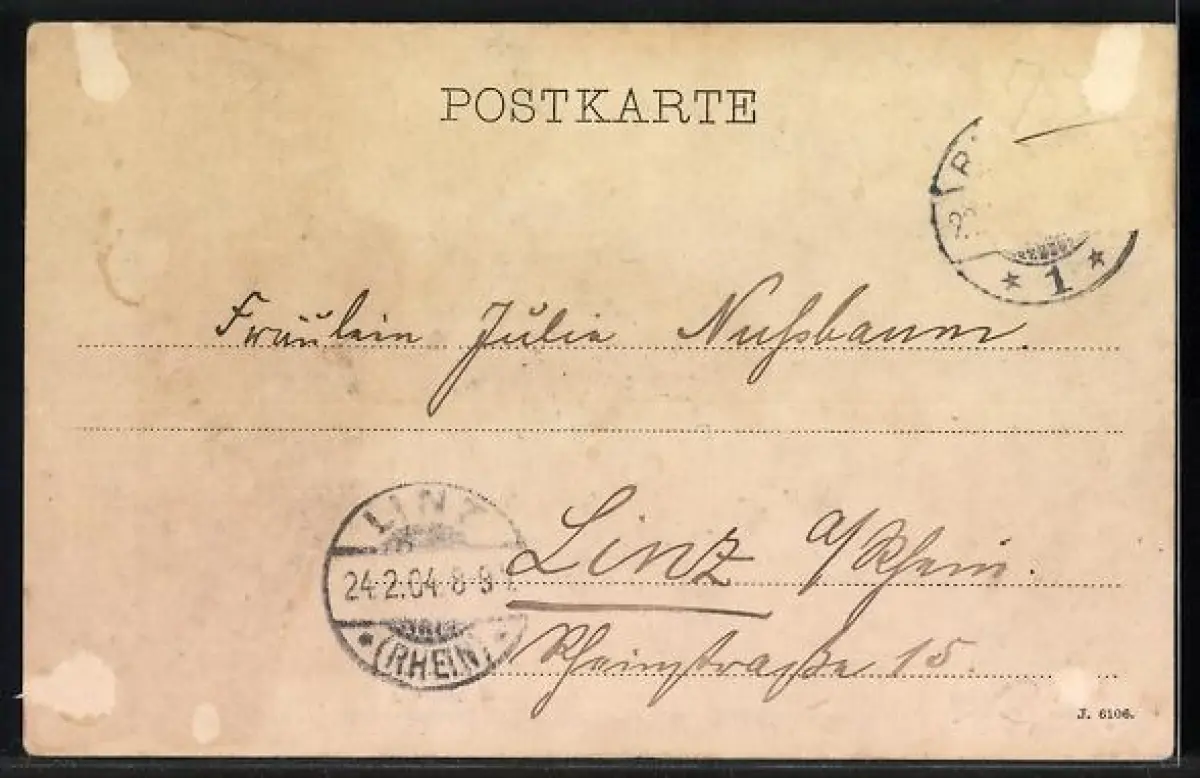 POSTKARTE
1
Fräulein Julie Nußbaum.
LINZ
24.2.04 8-9
(RHEIN)
Linz a/Rhein.
Rheinstraße 15.
J. 6106.